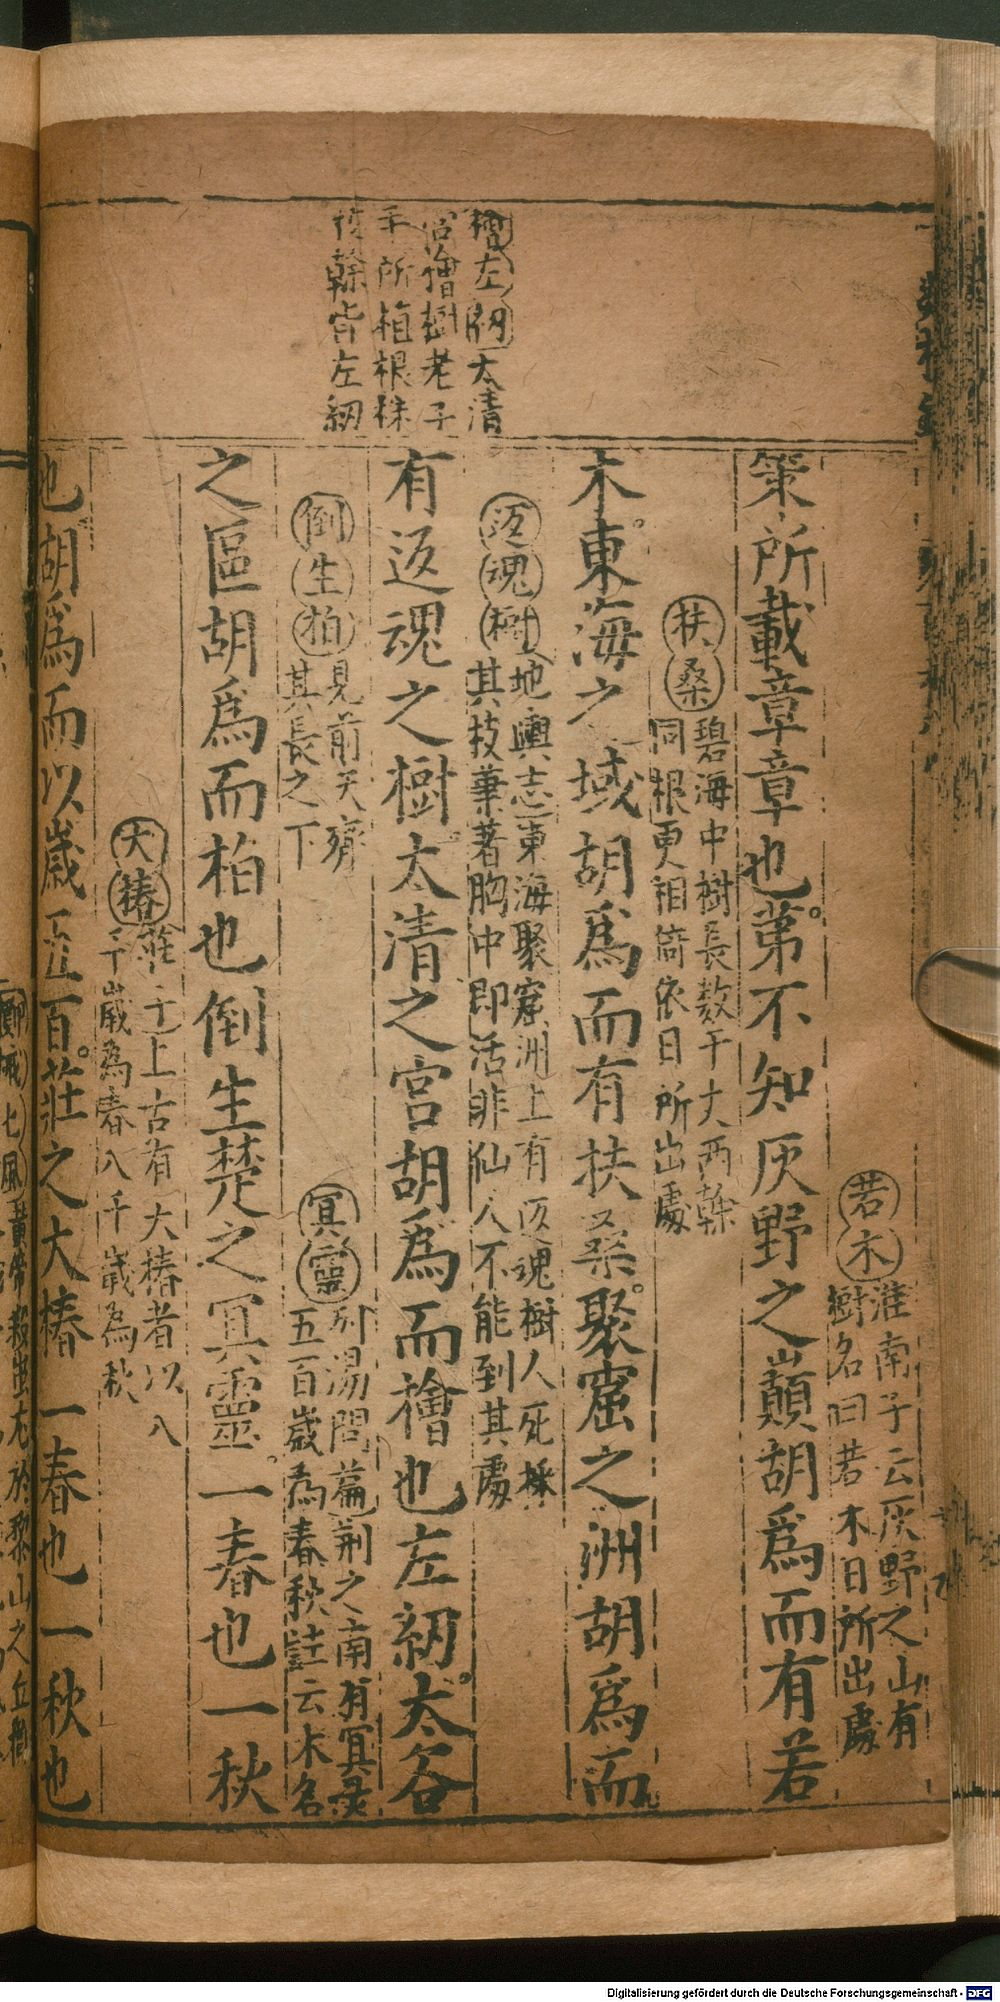 檜左紉太清
宮檜樹老子
手所植根株
枝榦皆左紉
若木淮南子云灰野之山有
樹名曰若木日所出處
策所載章章也第不知灰野之巔胡爲而有若
扶桑碧海中樹長数千丈両榦
同根更相倚依日所出處
木東海之域胡爲而有扶桑聚窟之洲胡爲而
返魂樹地輿志東海聚窟洲上有返魂樹人死採
其枝葉著胸中即活非仙人不能到其處
有返魂之樹太清之宮胡爲而檜也左紉太谷
倒生柏見前天齊
其長之下
冥靈列湯問篇荆之南有冥灵
五百歲為春秋註云木名
之區胡爲而柏也倒生楚之冥靈一春也一秋
大椿莊子上古有大椿者以八
千歲為春八千歲為秋
也胡爲而以歲五百莊之大椿一春也一秋也
Digitalisierung gefördert durch die Deutsche Forschungsgemeinschaft - DFG